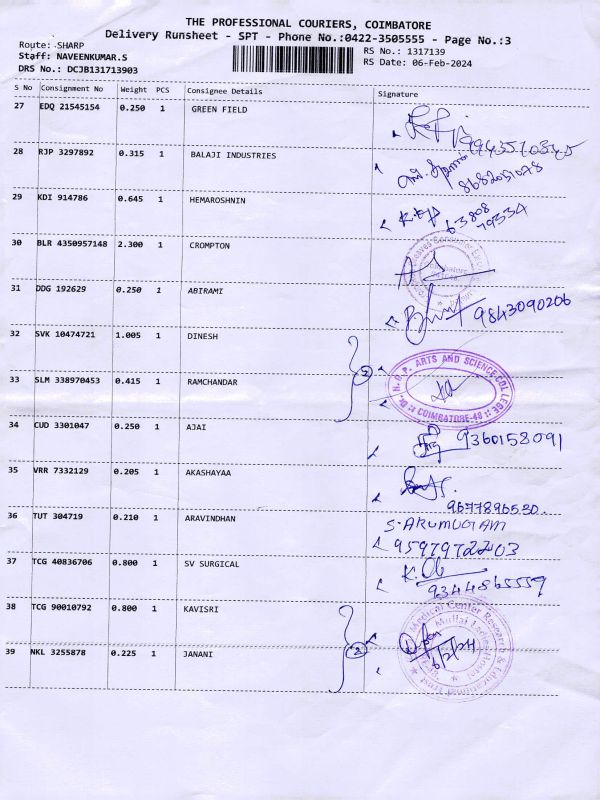 THE PROFESSIONAL COURIERS, COIMBATORE
Delivery Runsheet - SPT - Phone No.:0422-3505555 - Page No.:3
Route: SHARP
Staff: NAVEENKUMAR.S
DRS No.: DCJB131713903
RS No.: 1317139
RS Date: 06-Feb-2024
S No Consignment No Weight PCS Consignee Details Signature
27 EDQ 21545154 0.250 1 GREEN FIELD
28 RJP 3297892 0.315 1 BALAJI INDUSTRIES
8682051078
29 KDI 914786 0.645 1 HEMAROSHNIN
63808
79334
30 BLR 4350957148 2.300 1 CROMPTON
Coimbatore
31 DDG 192629 0.250 1 ABIRAMI
9843090206
32 SVK 10474721 1.005 1 DINESH
2
33 SLM 338970453 0.415 1 RAMCHANDAR
Dr. N.G.P. ARTS AND SCIENCE COLLEGE
COIMBATORE-48
34 CUD 3301047 0.250 1 AJAI
9360158091
35 VRR 7332129 0.205 1 AKASHAYAA
9677896530.
36 TUT 304719 0.210 1 ARAVINDHAN
S. ARUMUGAM
9597972203
37 TCG 40836706 0.800 1 SV SURGICAL
9344865559
38 TCG 90010792 0.800 1 KAVISRI
2
Medical Center Research & Educational Trust
Mullai Ladies Hostel
6/2/24
39 NKL 3255878 0.225 1 JANANI